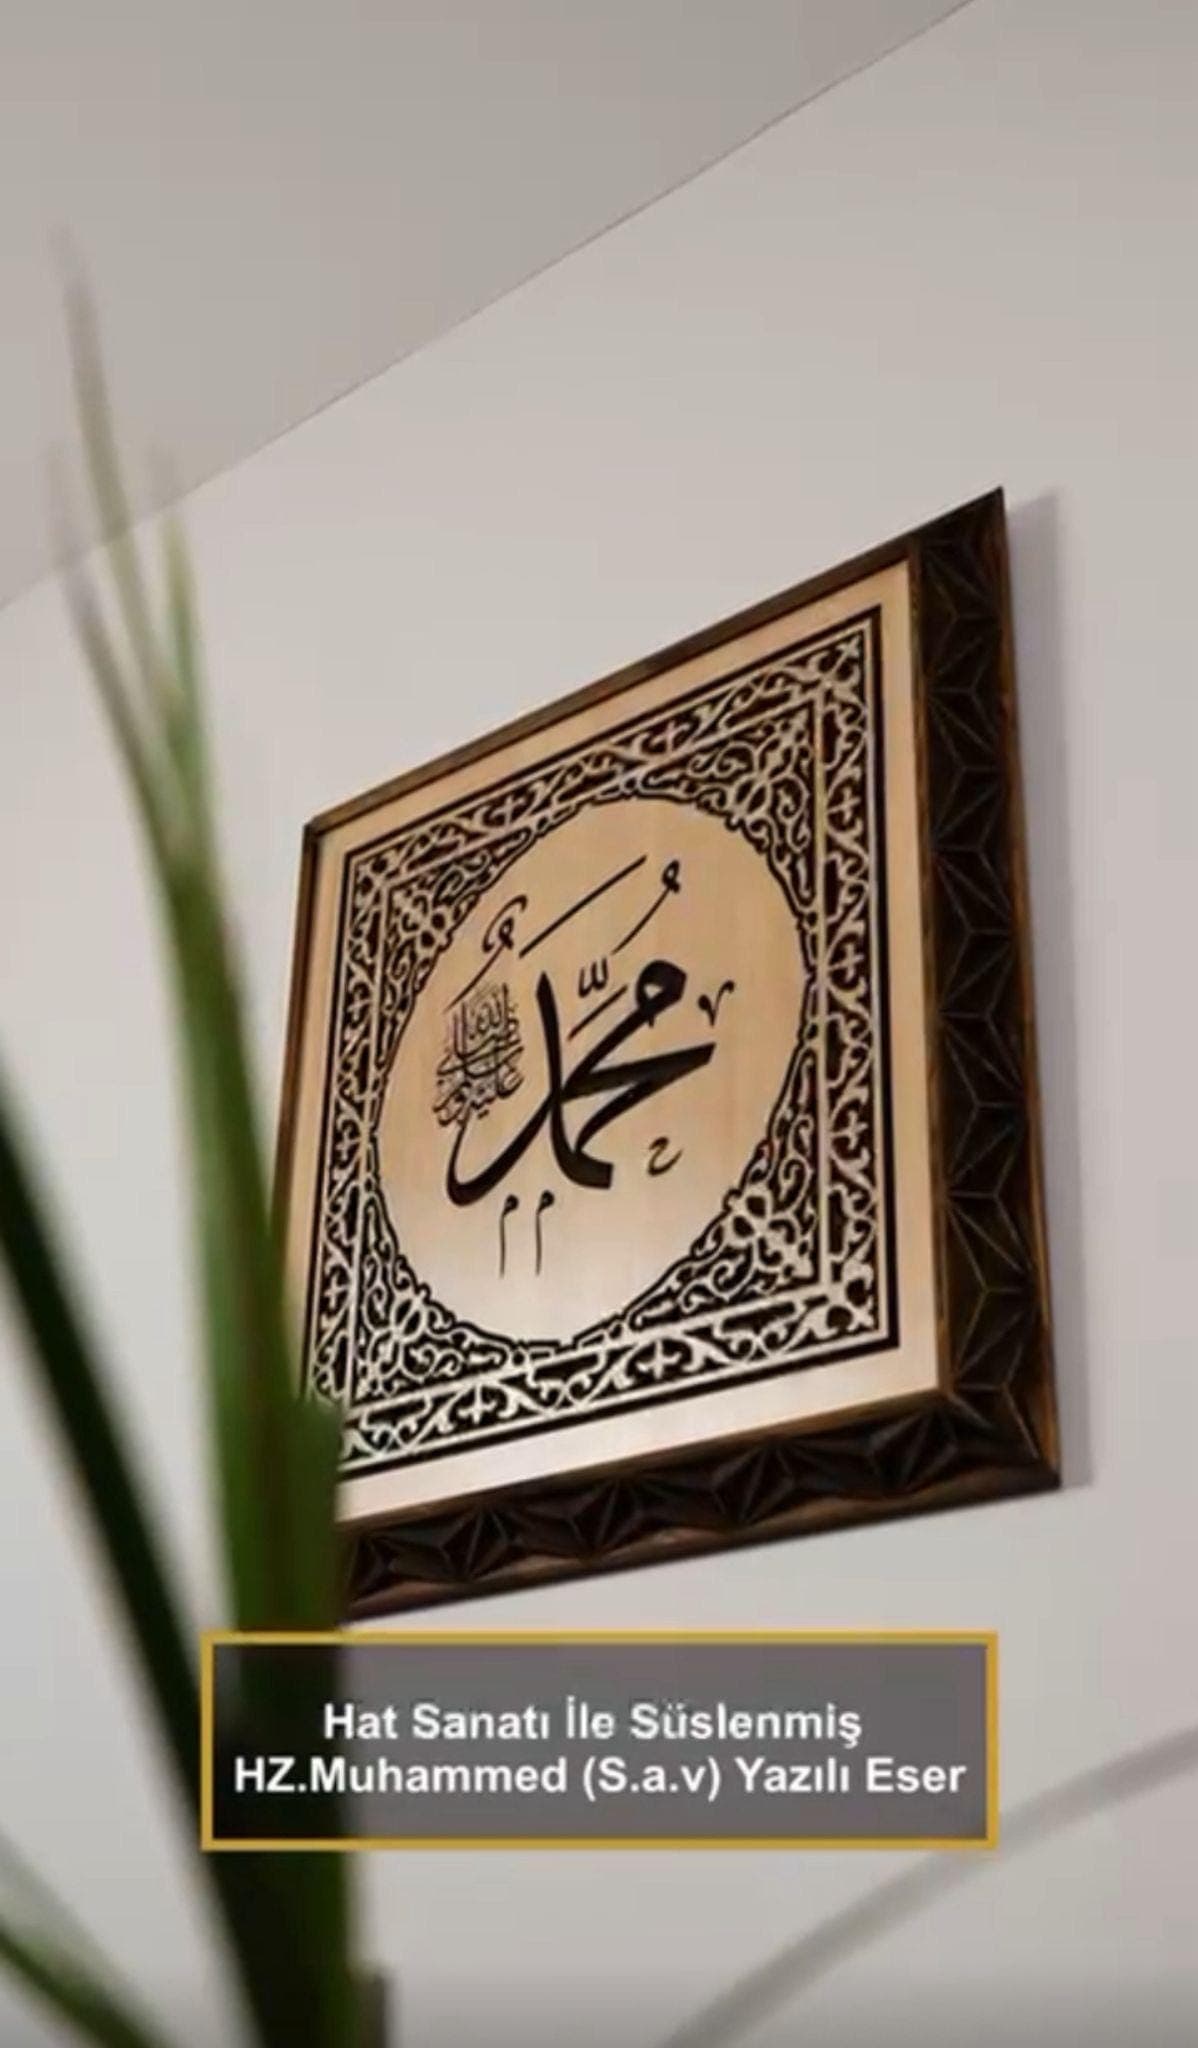 محمد
صلى الله عليه وسلم
Hat Sanatı İle Süslenmiş
HZ.Muhammed (S.a.v) Yazılı Eser